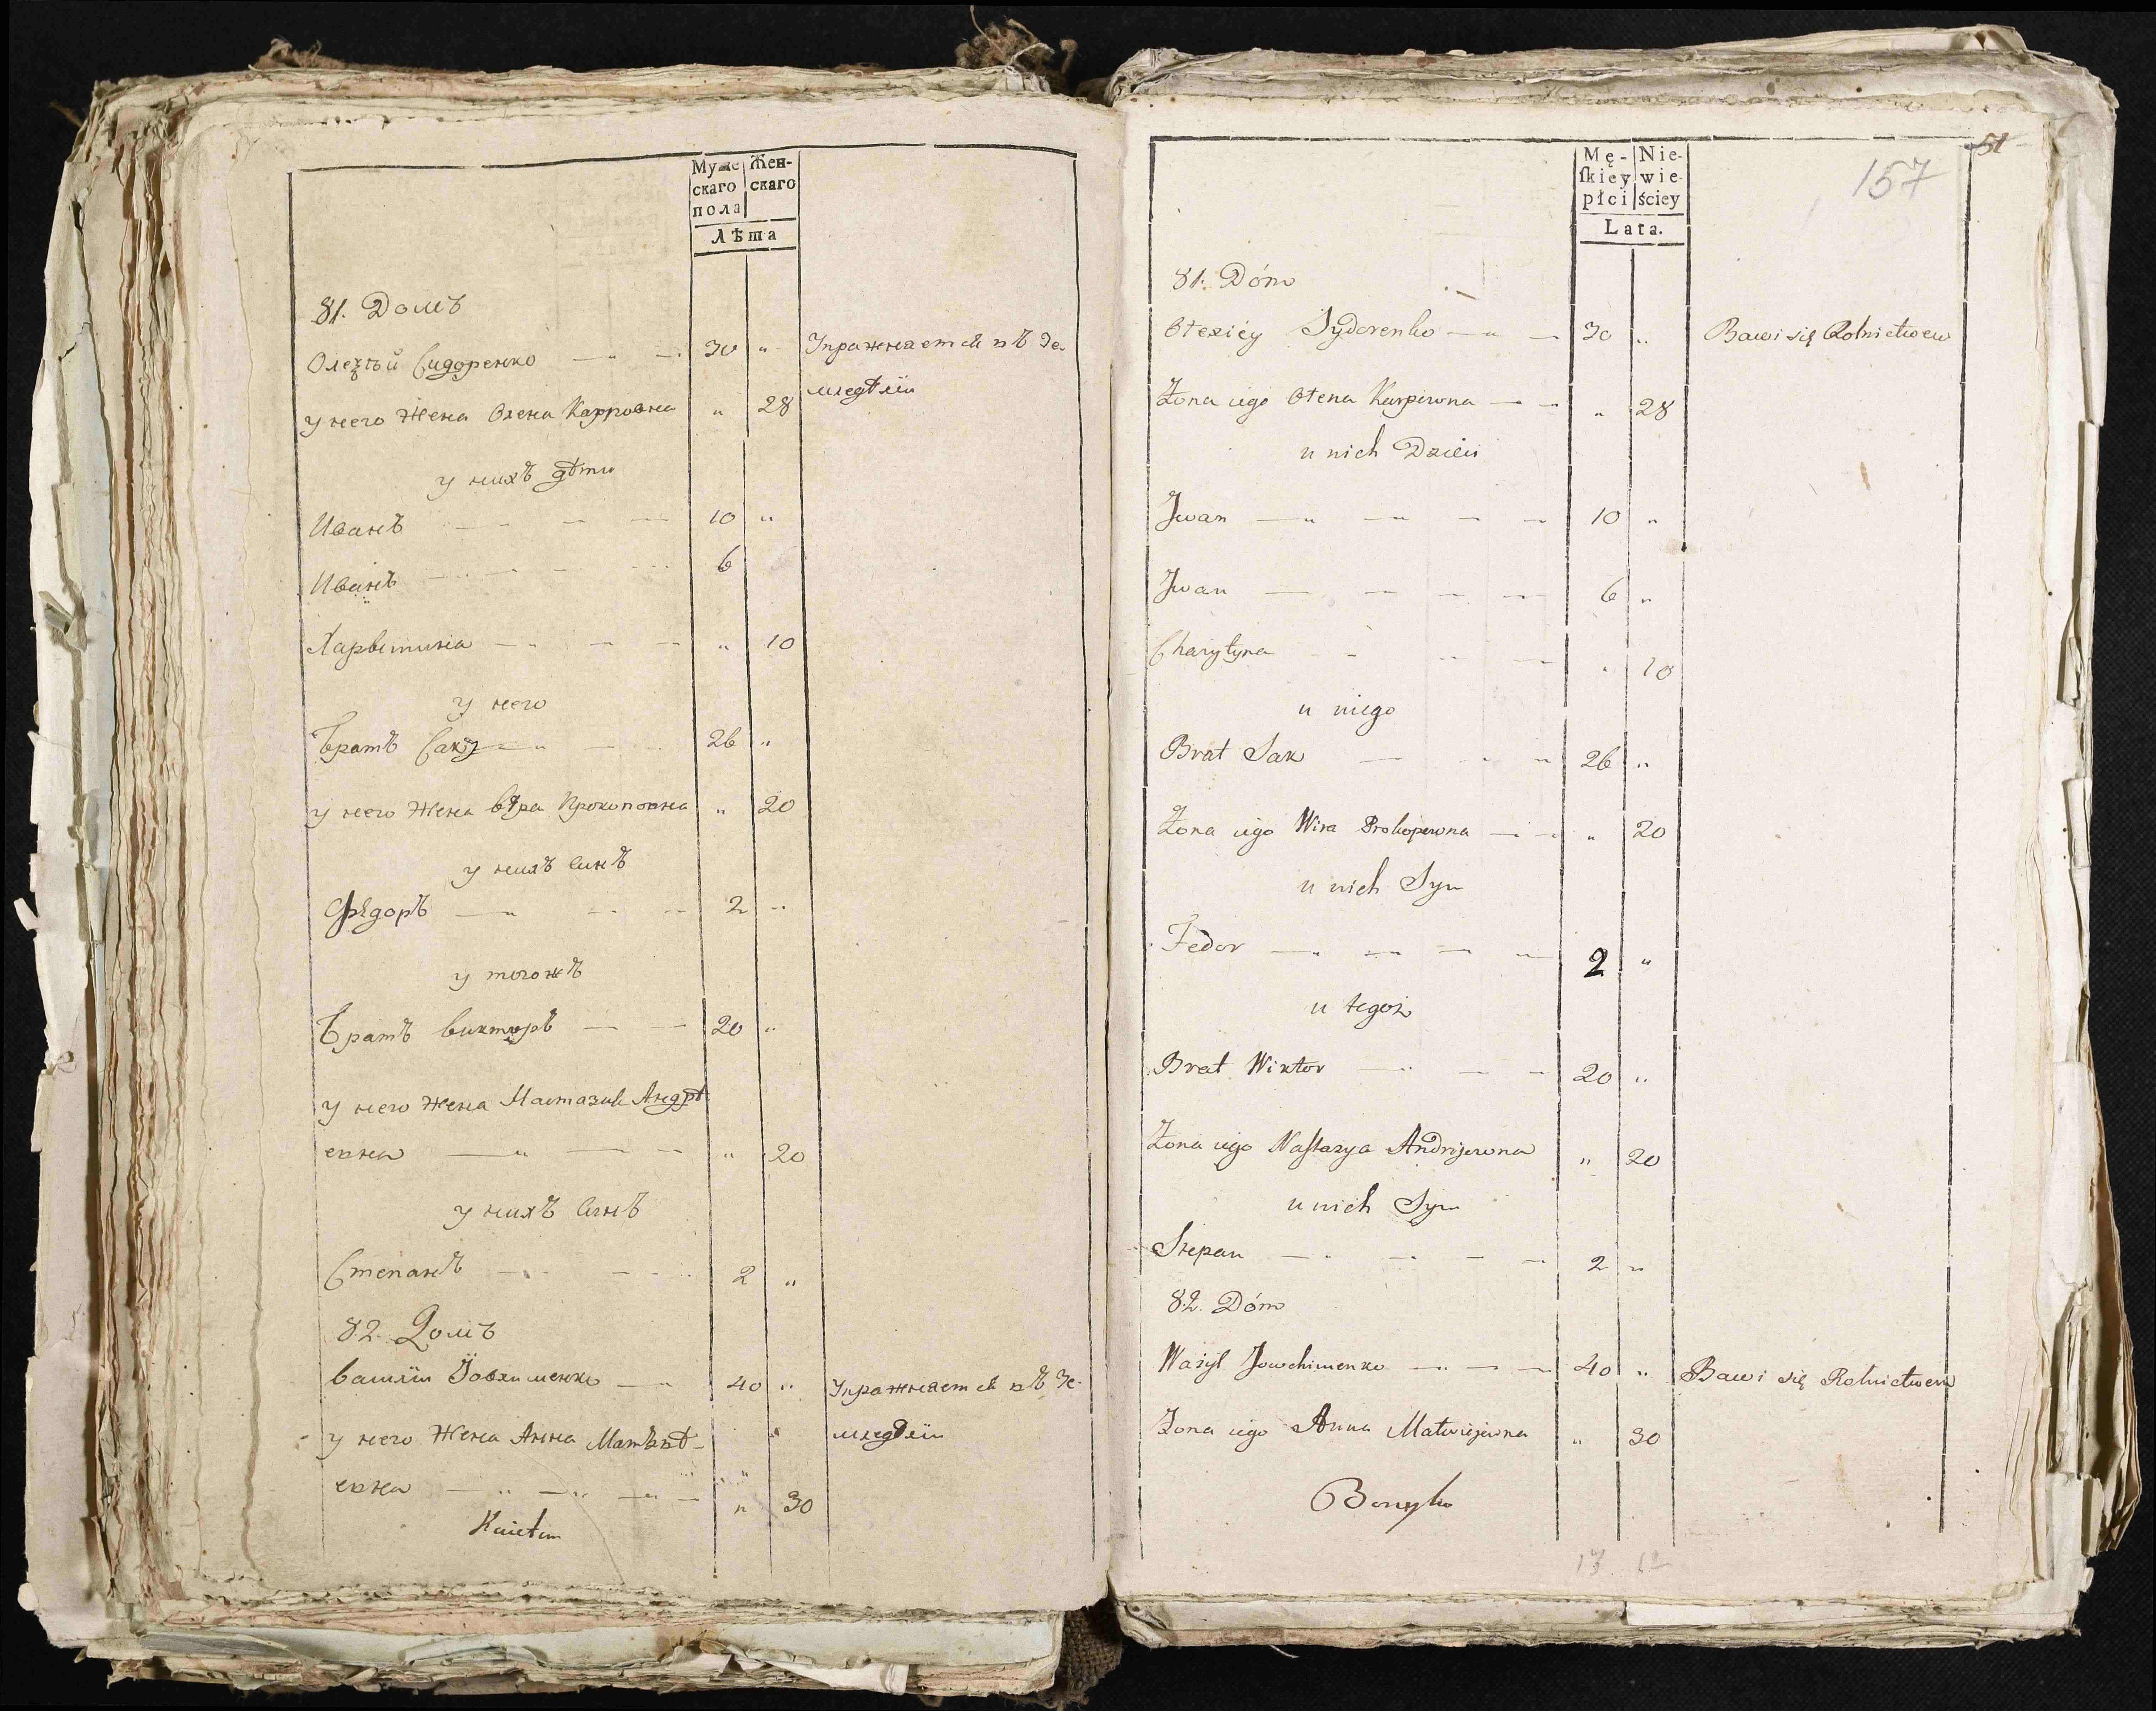 Муже Жен-
скаго скаго
пола
Лѣта
81. Домъ
Олеѯѣй Сидоренко — „ — 30 „ Упражняется въ Зе-
мледѣліи
у него Жена Олена Карповна „ 28
у нихъ дѣти
Иванъ — — — 10 „
Иванъ — — — 6
Харытина — „ — — „ 10
у него
Братъ Сакъ — „ — 26 „
у него Жена Вѣра Прокоповна „ 20
у нихъ Синъ
Фѣдоръ — „ — — 2 „
у тогожъ
Братъ Викторъ — — 20 „
у него Жена Настазия Андрѣ-
евна — „ — — „ 20
у нихъ Синъ
Степанъ — „ — — 2 „
82. Домъ
Василій Іовхименко — „ 40 „ Упражняется въ Зе-
мледѣліи
у него Жена Анна Матвѣ-
евна — „ — „ — „ — „ 30
Kaietan
51
157
Mę- Nie-
ſkiey wie-
płci ściey
Lata.
81. Dóm
Ołexiéy Sydorenko — „ — 30 „ Bawi się Rolnictwem
Żona iego Ołena Karpiwna — — „ 28
u nich Dzieci
Jwan — „ — „ — — 10 „
Jwan — — — — 6 „
Charytyna — — — „ 10
u niego
Brat Sak — — „ 26 „
Żona iego Wira Prokopowna — — „ 20
u nich Syn
Fedor — „ — — — 2 „
u tegoż
Brat Wiktor — „ — — 20 „
Żona iego Naſtazya Andrijewna „ 20
u nich Syn
Stepan — „ — — — 2 „
82. Dóm
Wasyl Jowchimenko — „ — — 40 „ Bawi się Rolnictwem
Żona iego Anna Matwiejewna „ 30
13 12